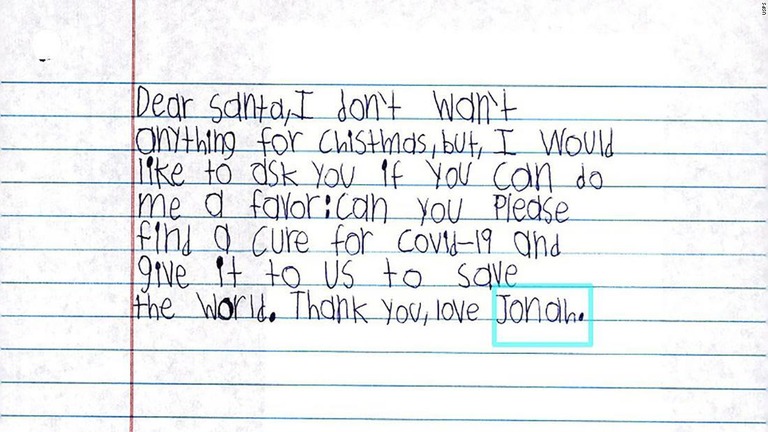 USPS
Dear santa, I don't wan't
anything for chistmas, but, I would
like to ask you if you can do
me a favor: can you please
find a cure for covid-19 and
give it to us to save
the world. Thank you, love Jonah.